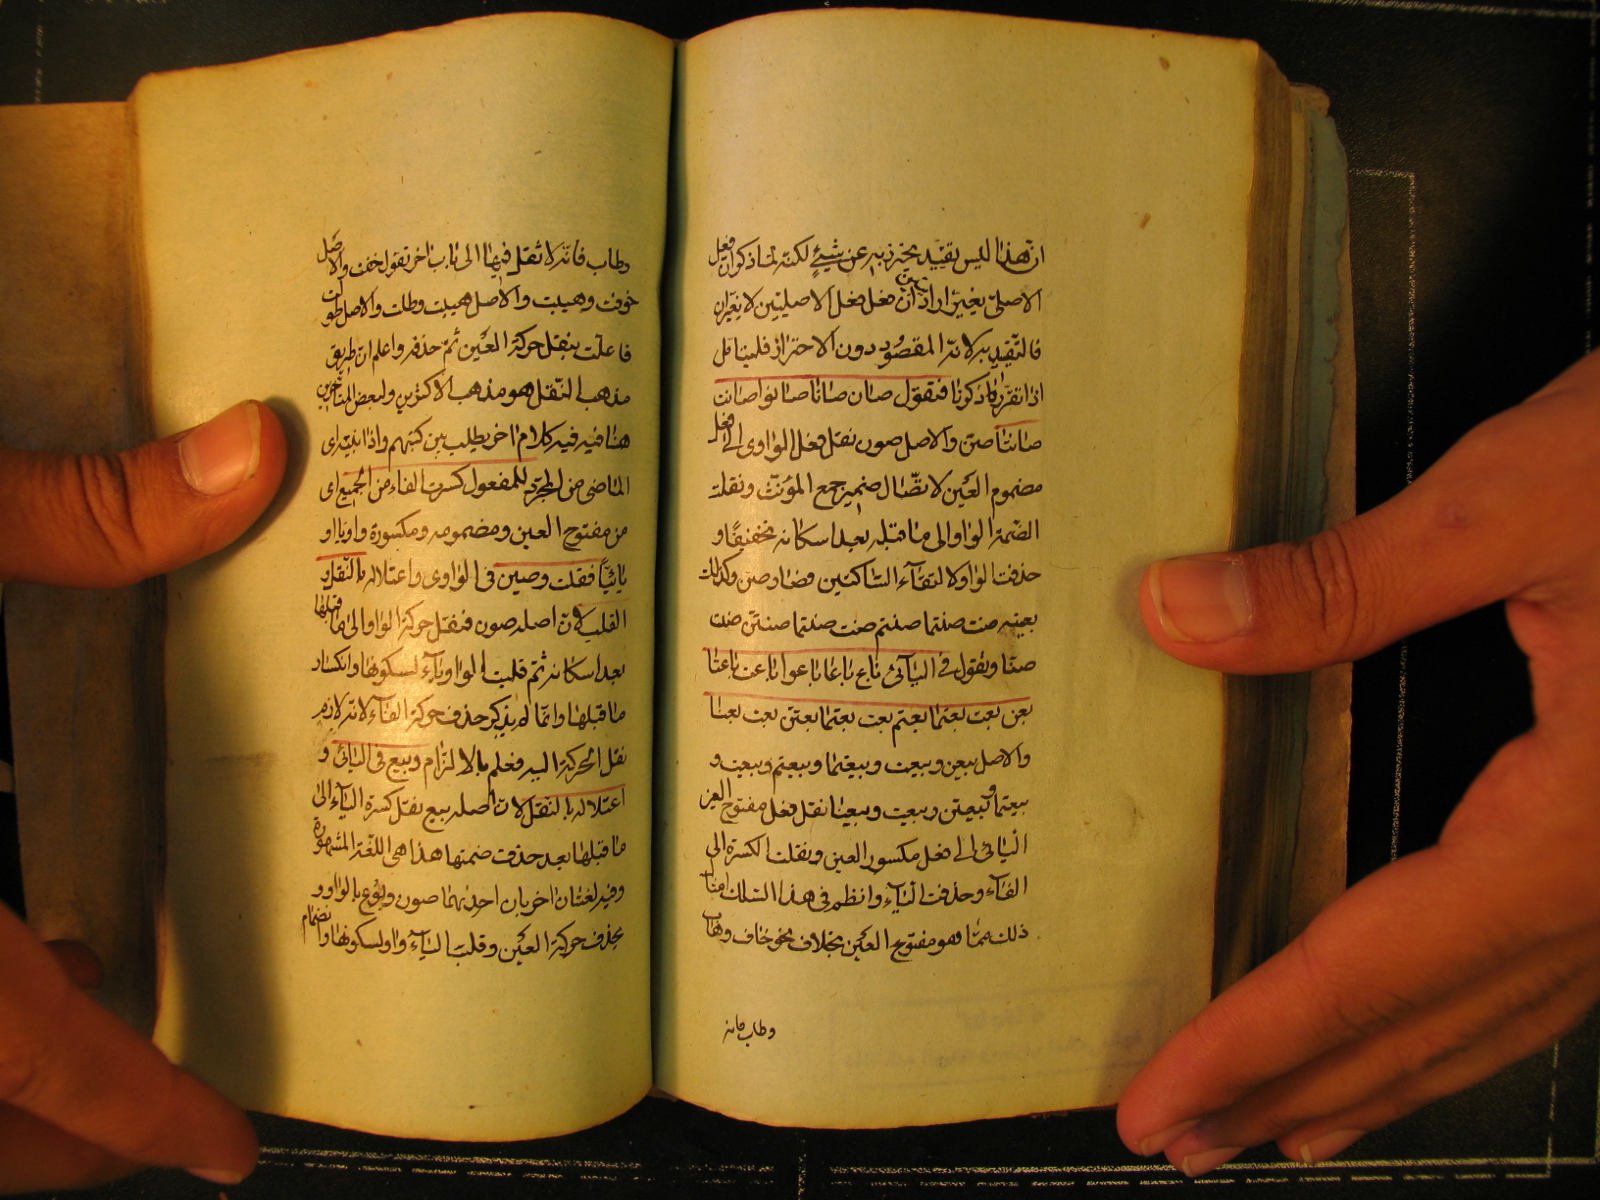 ان هذا ليس بقييد يحترز به عن شيء لكنه لما ذكر ان فعل
الاصلى بغير اراد ان فعل فعل الاصليين لا يغيران
فالتقييد به لانه المقصود دون الاحتراز فليتامل
اذا تقرر ما ذكرنا فنقول صان صانا صانوا صانت
صانتا صن والاصل صون نقل فعل الواوى الى فعل
مضموم العين لاتصال ضمير جمع المؤنث ونقلت
الضمة الواو الى ما قبله بعد اسكانه تخفيفا و
حذفت الواو لالتقاء الساكنين فصار صن وكذلك
بعينه صنت صنتما صنتم صنت صنتما صنتن صنت
صنا وتقول فى اليائى باع باعا باعوا باعت باعتا
بعن بعت بعتما بعتم بعت بعتما بعتن بعت بعنا
والاصل بيعن وبيعت وبيعتما وبيعتم وبيعت و
بيعتما وبيعتن وبيعت وبيعنا نقل فعل مفتوح العين
اليائى الى فعل مكسور العين ونقلت الكسرة الى
الفاء وحذفت الياء وانظم فى هذا السلك امثال
ذلك مما هو مفتوح العين بخلاف نحو خاف وهاب
وطاب فانه
وطاب فانه لا تنقل فيها الى باب اخر تقول خفت والاصل
خوفت وهبت والاصل هيبت وطلت والاصل طولت
فاعلت بنقل حركة العين ثم حذفه واعلم ان طريق
مذهب النقل هو مذهب الاكثرين ولبعض المتاخرين
هنا فيه كلام اخر يطلب من كتبهم واذا بنيته اى
الماضى من المجرد للمفعول كسرت الفاء من الجميع اى
من مفتوح العين ومضمومه ومكسورة واويا او
يائيا فقلت وصين فى الواوى واعتلاله بالنقل و
القلب لان اصله صون فنقل حركة الواو الى ما قبلها
بعد اسكانه ثم قلبت الواو ياء لسكونها وانكسار
ما قبلها وانما لم يذكر حذف حركة الفاء لانه لازم
نقل الحركة اليه فعلم بالالتزام وبيع فى اليائى و
اعتلاله بالنقل لان اصله بيع نقل كسرة الياء الى
ما قبلها بعد حذفت ضمتها هذا هى اللغة المشهورة
وفيه لغتان اخريان احديهما صون وبوع بالواو و
بحذف حركة العين وقلب الياء واو لسكونها وانضمام